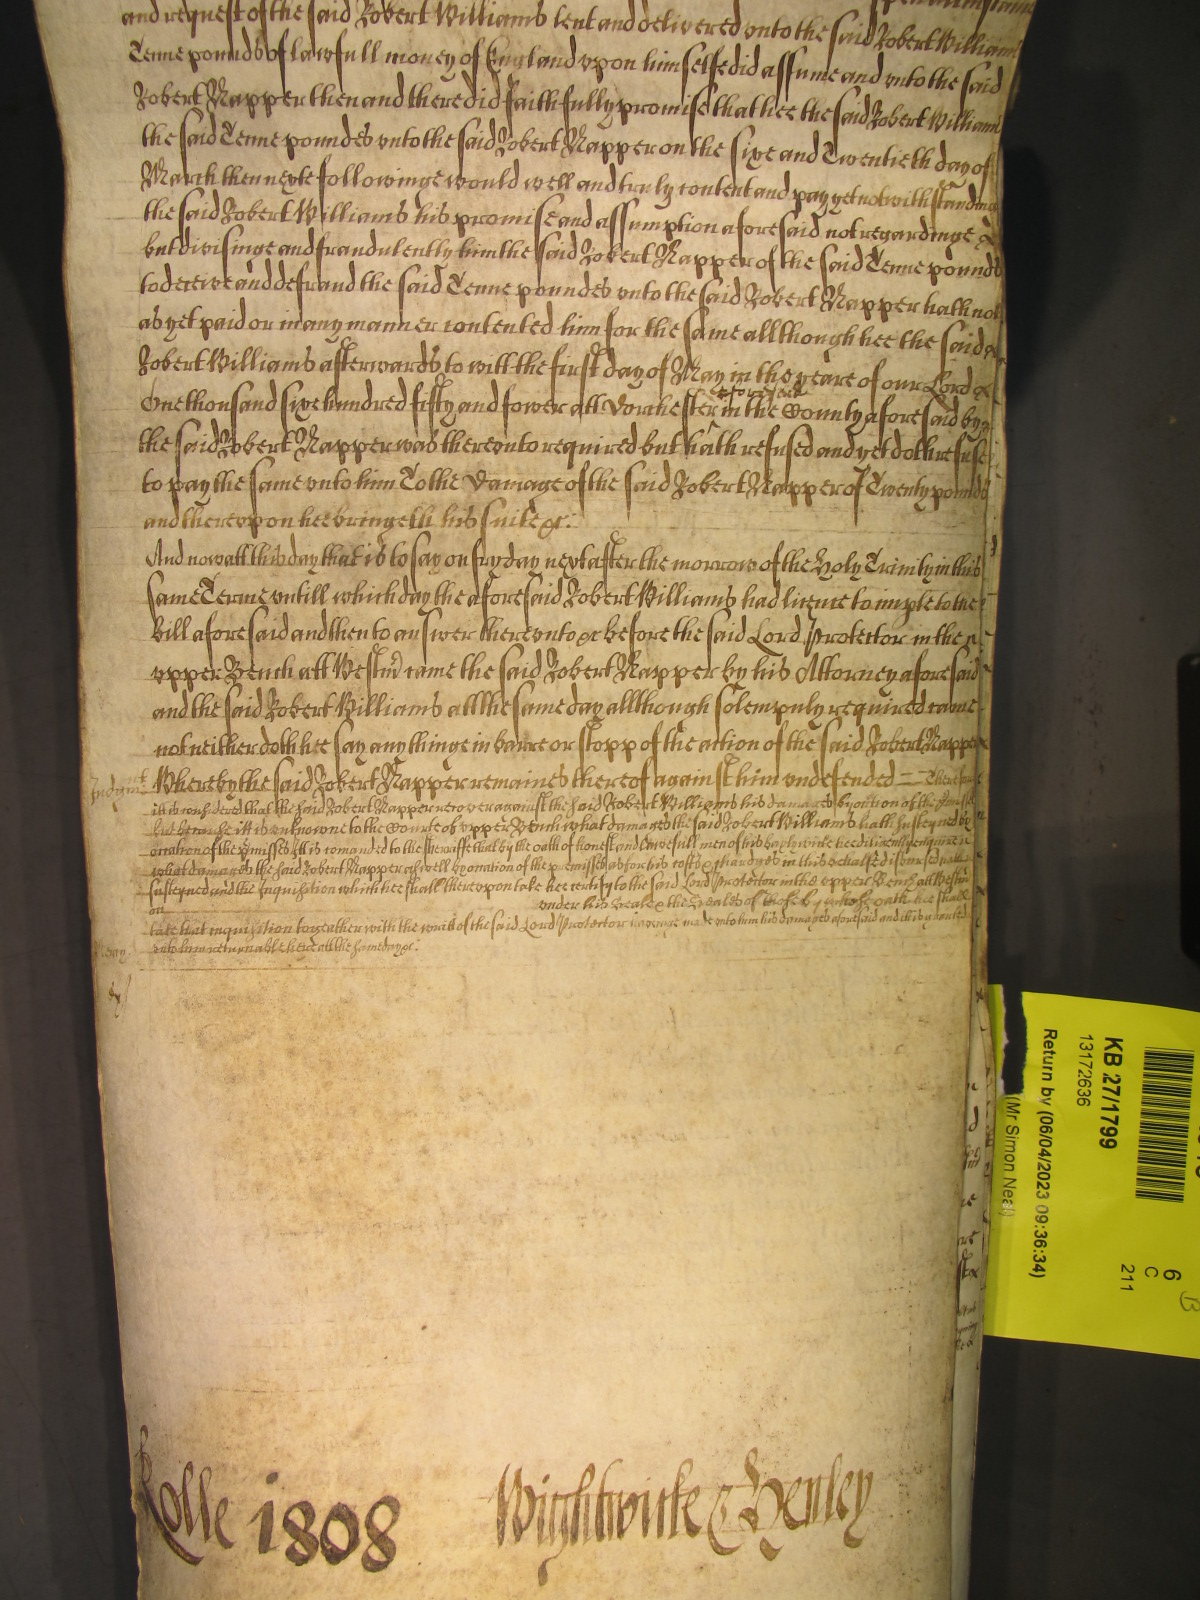 and request of the said Robert Williams lent and delivered unto the said Robert Williams
Tenne pounds of lawfull money of England upon himselfe did assume and unto the said
Robert Napper then and there did faithfully promise that hee the said Robert Williams
the said Tenne poundes unto the said Robert Napper on the sixe and Twentieth day of
March then nexte followinge would well and truly content and pay yet notwithstandinge
the said Robert Williams his promise and assumption aforesaid not regardinge &
but divisinge and fraudulently him the said Robert Napper of the said Tenne pounds
to deceive and defraud the said Tenne poundes unto the said Robert Napper hath not
as yet paid or in any manner contented him for the same allthough hee the said
Robert Williams afterwards to witt the first day of May in the yeare of our Lord
One thousand sixe hundred fifty and fower att Dorchester aforesaid in the County aforesaid by
the said Robert Napper was thereunto required but hath refused and yet doth refuse
to pay the same unto him To the Damage of the said Robert Napper of Twenty pounds
and thereupon hee bringeth his suite &c.
And now att this day that is to say on fryday next after the morrow of the Holy Trinity in this
same Terme untill which day the aforesaid Robert Williams had licence to imple to the
Bill aforesaid and then to answer thereunto &c before the said Lord Protector in the
upper Bench att Westmr came the said Robert Napper by his Attorney aforesaid
and the said Robert Williams att the same day allthough solempnly required came
not neither doth hee say any thinge in barre or stopp of the action of the said Robert Napper
Judgmt Whereby the said Robert Napper remaines thereof against him undefended Therefore
itt is considered that the said Robert Napper recover against the said Robert Williams his damages by occasion of the
but because itt is unknowne to the Courte of upper Bench what damages the said Robert Williams hath susteyned by
occasion of the premisses Itt is comanded to the Sheriffe that by the oath of honest and lawefull men of his baylywicke hee diligently enquire
what damages the said Robert Napper aswell by occasion of the premisses as for his costs & chardges in this behalfe disbursed
susteyned and the Inquisition which hee shall thereupon take hee certify to the said Lord Protector in the upper Bench att Westmr
on under his Seale & the Seales of those by whose oath hee shall
take that inquisition togeather with the writt of the said Lord Protector
unto him returnable here att the same day &c.
Rolle 1808 Wightwicke & Henley
KB 27/1799
13172636
Return by (06/04/2023 09:36:34)
(Mr Simon Neal)
6
C
211